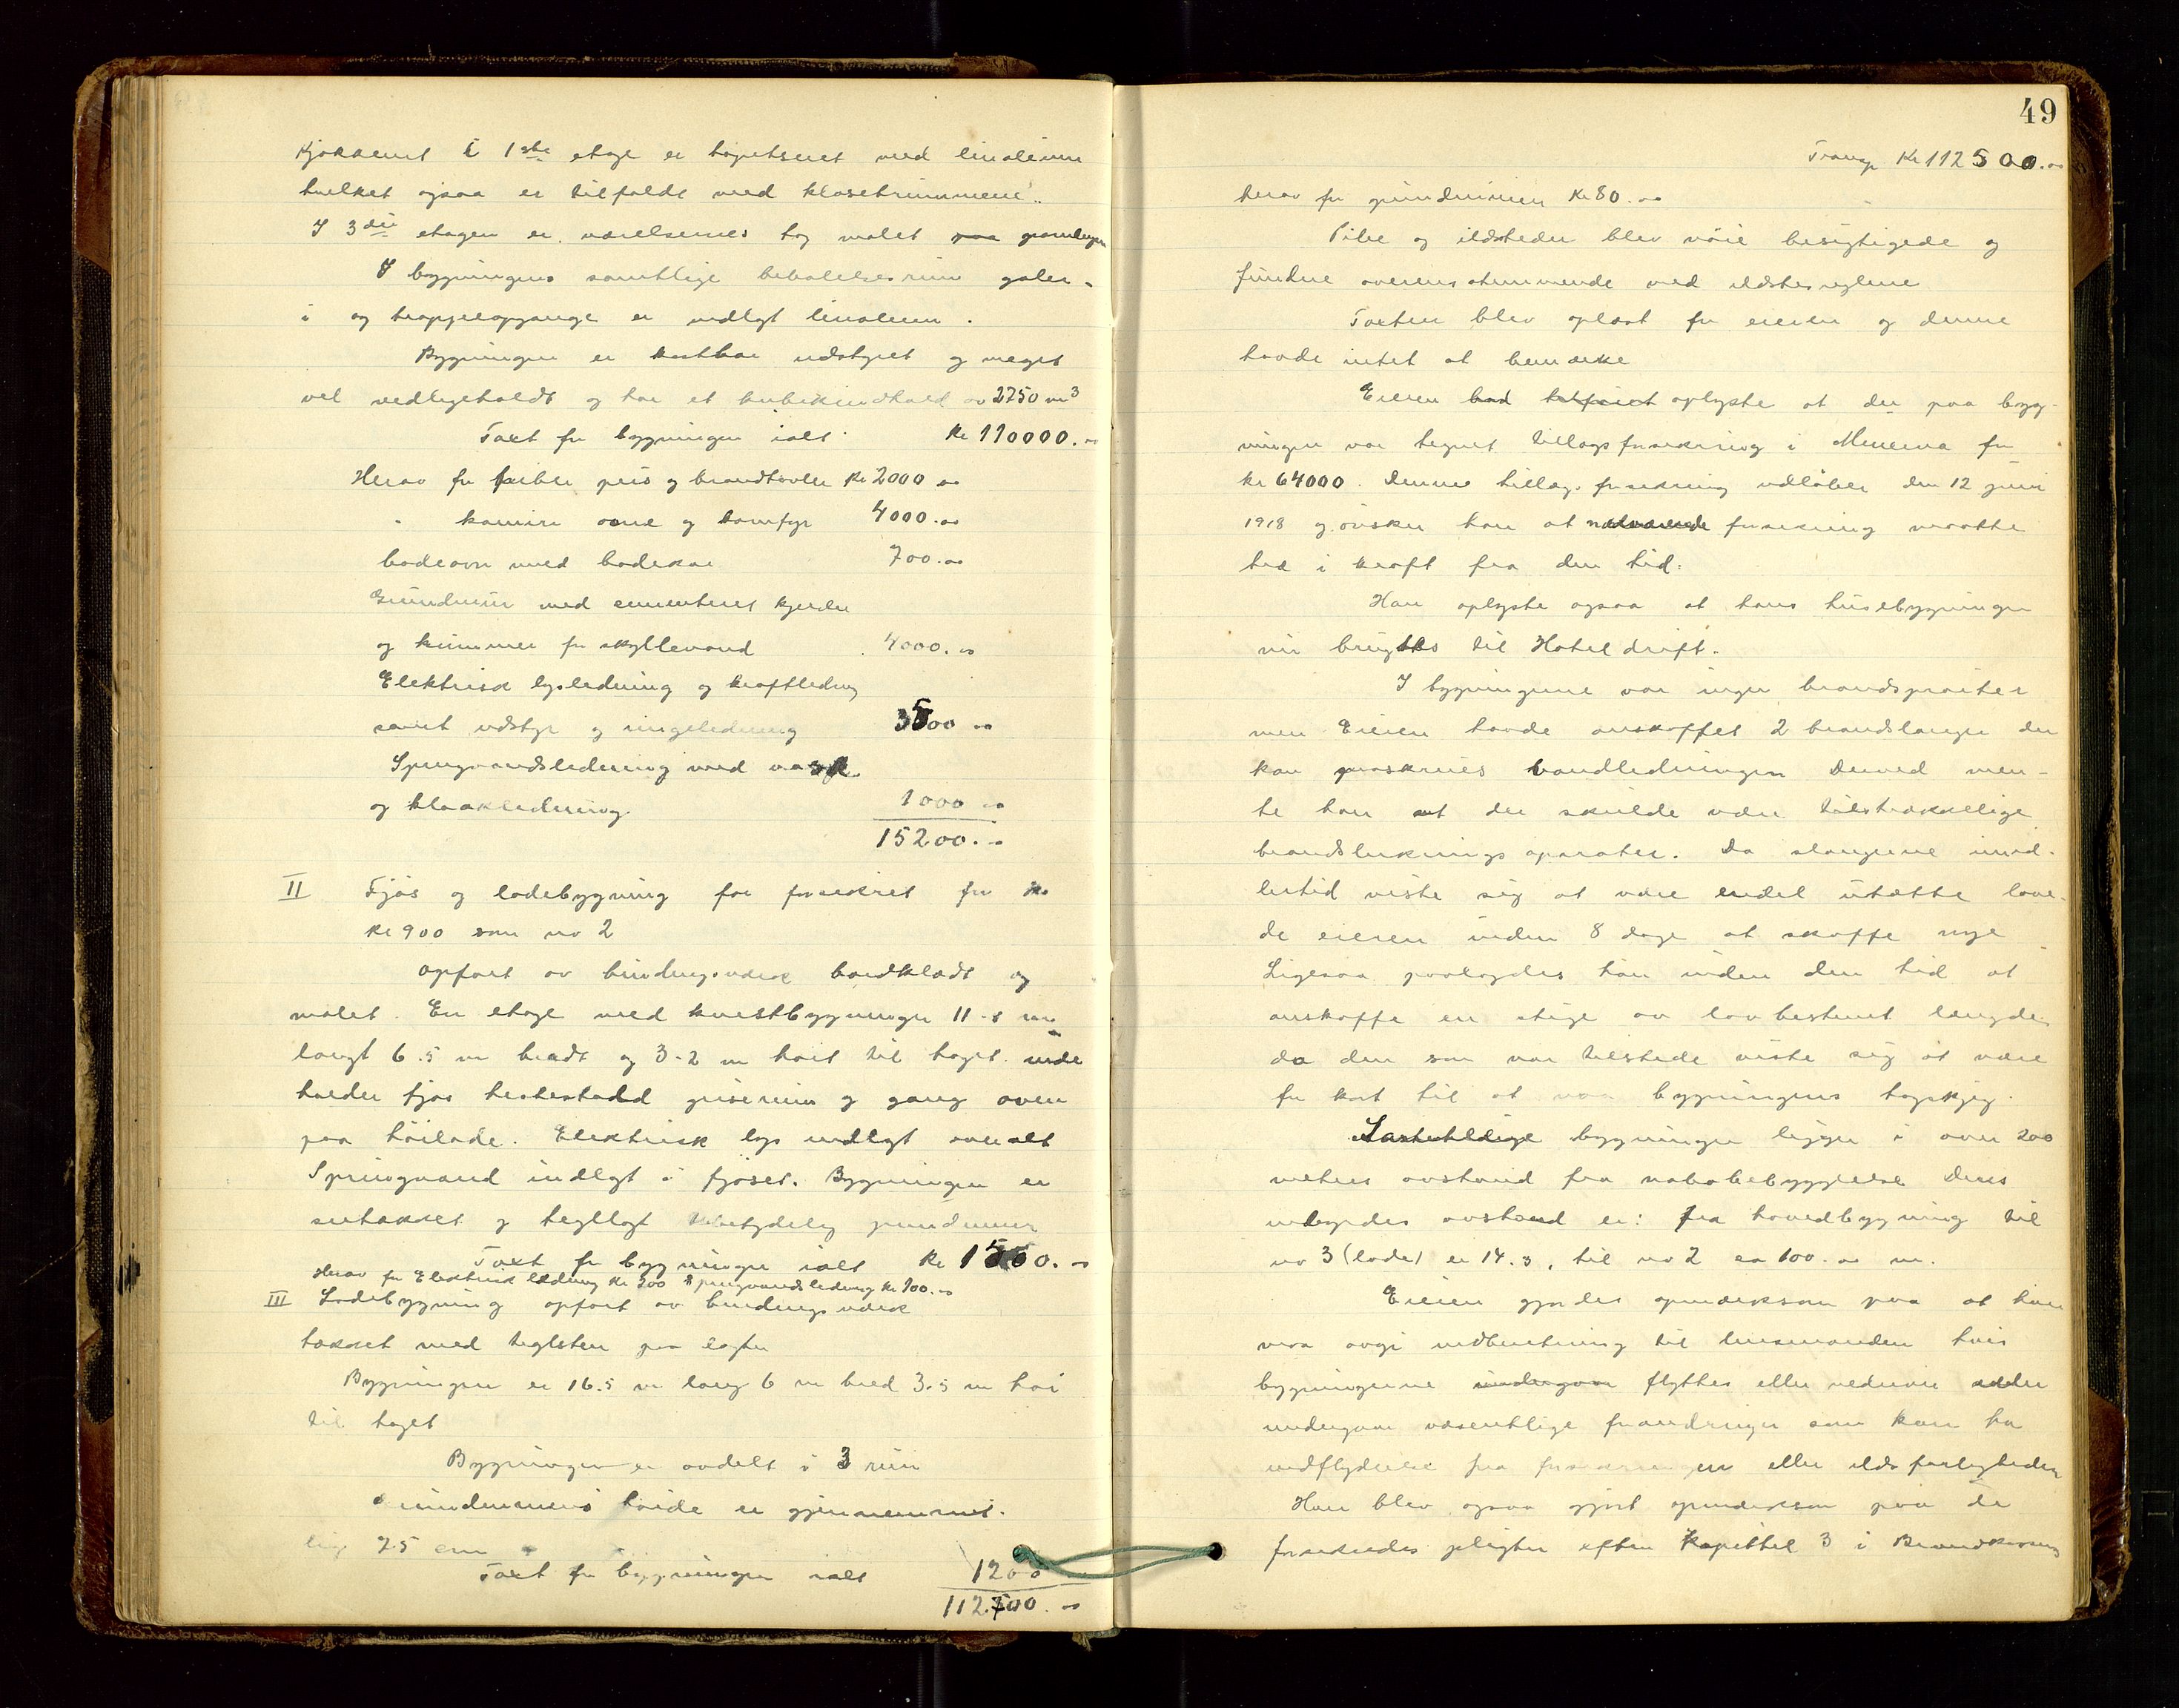 Kjøkkenet i 1ste etage er tapetseret med linoleum
hvilket ogsaa er tilfældt med klosetrummene.
I 3die etagen er værelsernes tag malet paa
I bygningens samtlige beboelsesrum galer-
i og trappeopgange er indlagt linoleum.
Bygningen er kostbar udstyret og meget
vel vedligeholdt og har et kubikindhold av 2750 m3
Taxt for bygningen ialt Kr 110000.00
Herav for peis og brandtavler Kr 2000 00
" kamin ovne og komfyr 4000.00
badeovn med badekar 700.00
Grundmur med cementeret kjelder
og kummer for skyllevand 4000.00
Elektrisk lysledning og kraftledning
samt udstyr og ringeledning 3500 00
Springvandsledning med vask
og kloakledning. 1000 00
15200.00
II Fjøs og ladebygning før forsikret for
kr 900 som no 2
opført av bindingsverk bordklædt og
malet. En etage med kvistbygninger 11.8 m
langt 6.5 m bredt og 3.2 m høit til taget. inde
holder fjøs hestestald griserum og gang oven
paa høilade. Elektrisk lys indlagt overalt
Springvand indlagt i fjøset. Bygningen er
og teglagt ubetydelig grundmur
Taxt for bygningen ialt Kr 1500.00
Herav for Elektrisk ledning kr 200 Springvandsledning kr 100.00
III Ladebygning opført av bindingsverk
tækket med teglsten paa lægter
Bygningen er 16.5 m lang 6 m bred 3.5 m høi
til taget
Bygningen er avdelt i 3 rum
Grundmurens høide er gjennemsnit-
lig 75 cm
Taxt for bygningen ialt 1200
112.500.00
49
Transp Kr 112500.00
herav for grundmuren Kr 80.00
Piber og ildsteder blev nøie besigtigede og
fundne overensstemmende med ildstedsreglene
Taxten blev oplæst for eieren og denne
havde intet at bemerke
Eieren oplyste at der paa byg-
ningen var tegnet tillægsforsikring i Minerva for
kr 64000. Denne tillægsforsikring udløber den 12 juni
1918 og ønsker han at nærværende forsikring maatte
træ i kraft fra den tid.
Han oplyste ogsaa at hans husebygninger
nu brugtes til Hoteldrift.
I bygningene var ingen brandsprøiter
men Eieren havde anskaffet 2 brandslanger der
kan paaskrues vandledningen Derved men-
te han at der skulde være tilstrækkelige
brandsluknings aparater. Da slangene imid-
lertid viste sig at være endel utætte love-
de eieren inden 8 dage at skaffe nye
Ligesaa paalagdes han inden den tid at
anskaffe en stige av lovbestemt længde
da den som var tilstede viste sig at være
for kort til at naa bygningens tagskjæg.
Samtlige bygninger ligger i over 200
meters avstand fra nabobebyggelse Deres
indbyrdes avstand er: fra hovedbygning til
no 3 (lade) er 14.3, til no 2 ca 100.00 m.
Eieren gjordes opmerksom paa at han
maa avgi indberetning til lensmanden hvis
bygningerne undergaar flyttes eller nedrives eller
undergaar væsentlige forandringer som kan ha
indflydelse paa forsikringen eller ildsfarligheden
Han blev ogsaa gjort opmerksom paa de
forsikredes pligter efter Kapittel 3 i